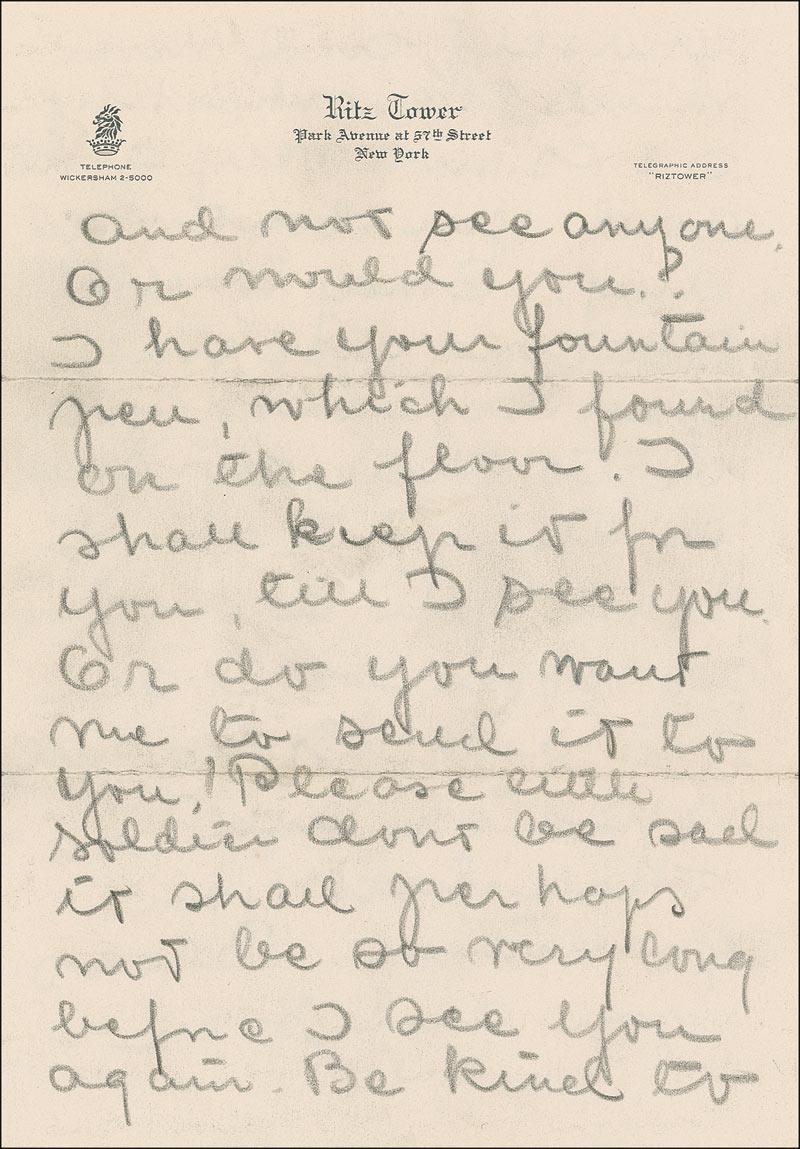 Ritz Tower
Park Avenue at 57th Street
New York
TELEPHONE
WICKERSHAM 2-5000
TELEGRAPHIC ADDRESS
"RIZTOWER"
and not see anyone.
Or would you.?
I have your fountain
pen, which I found
on the floor. I
shall keep it for
you, till I see you.
Or do you want
me to send it to
you! Please little
soldier dont be sad
it shall perhaps
not be so very long
before I see you
again. Be kind to